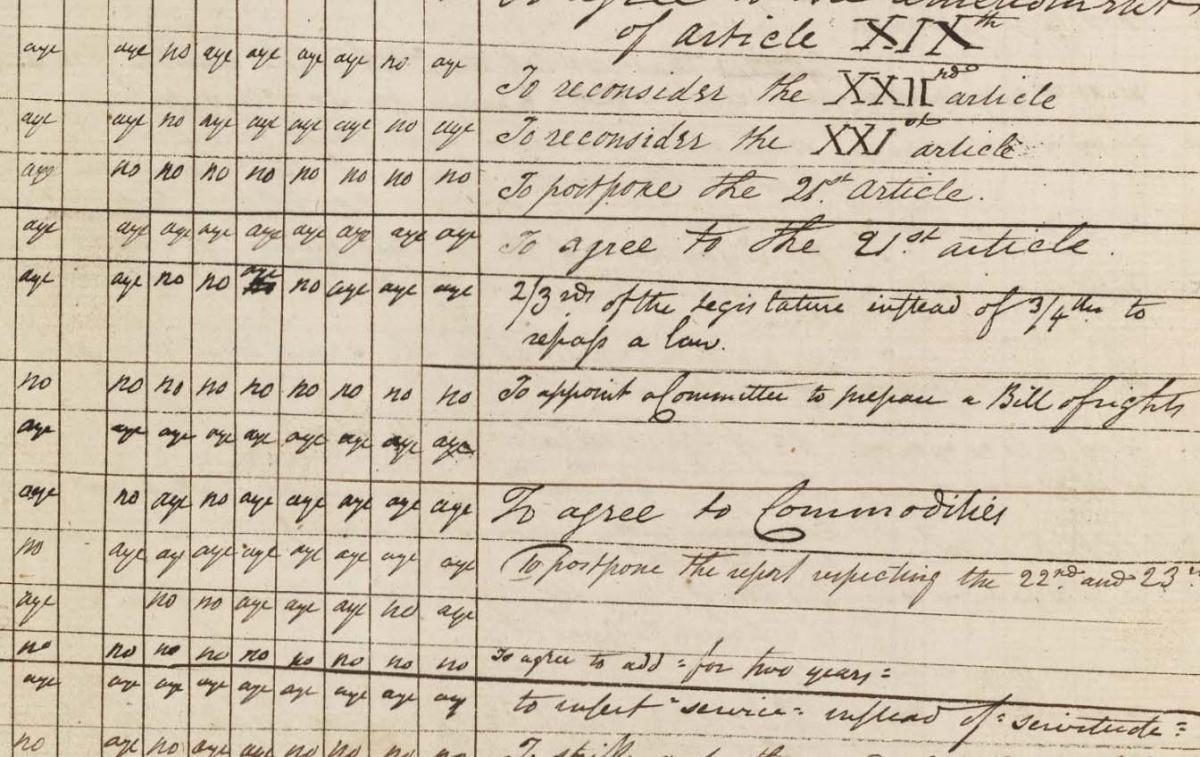 To agree to the amendment
of article XIXth
aye aye no aye aye aye aye no aye
To reconsider the XXIInd article
aye aye no aye aye aye aye no aye To reconsider the XXIst article
aye no no no no no no no no To postpone the 21st Article.
aye aye aye aye aye aye aye aye aye To agree to the 21st article.
aye aye no no aye no aye aye aye 2/3rds of the Legislature instead of 3/4ths to
repass a law.
no no no no no no no no no To appoint a Committee to prepare a Bill of rights
aye aye aye aye aye aye aye aye aye
aye no aye no aye aye aye aye aye To agree to Commodities
no aye ay aye aye aye aye aye aye To postpone the report respecting the 22nd and 23
aye no no aye aye aye no aye
no no no no no no no no no To agree to add "for two years"
aye aye aye aye aye aye aye aye ay to insert "service" instead of "servitude"
no aye no aye aye no no no no To